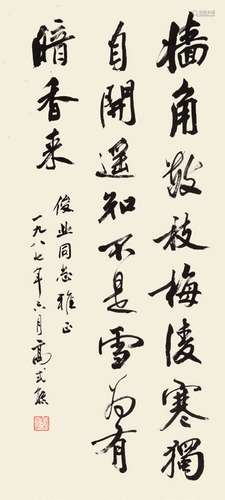 墙角数枝梅凌寒独
自開遥知不是雪为有
暗香来
俊业同志雅正
一九八七年六月高式熊